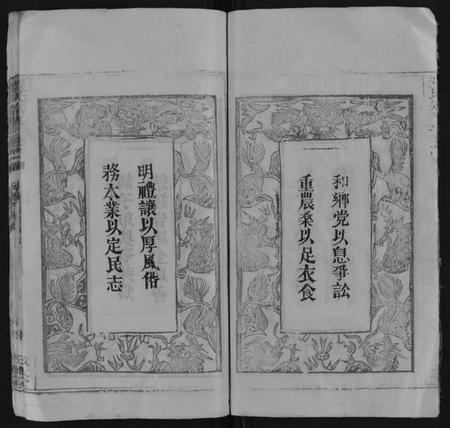 和鄉党以息爭訟
重農桑以足衣食
明禮讓以厚風俗
務夲業以定民志